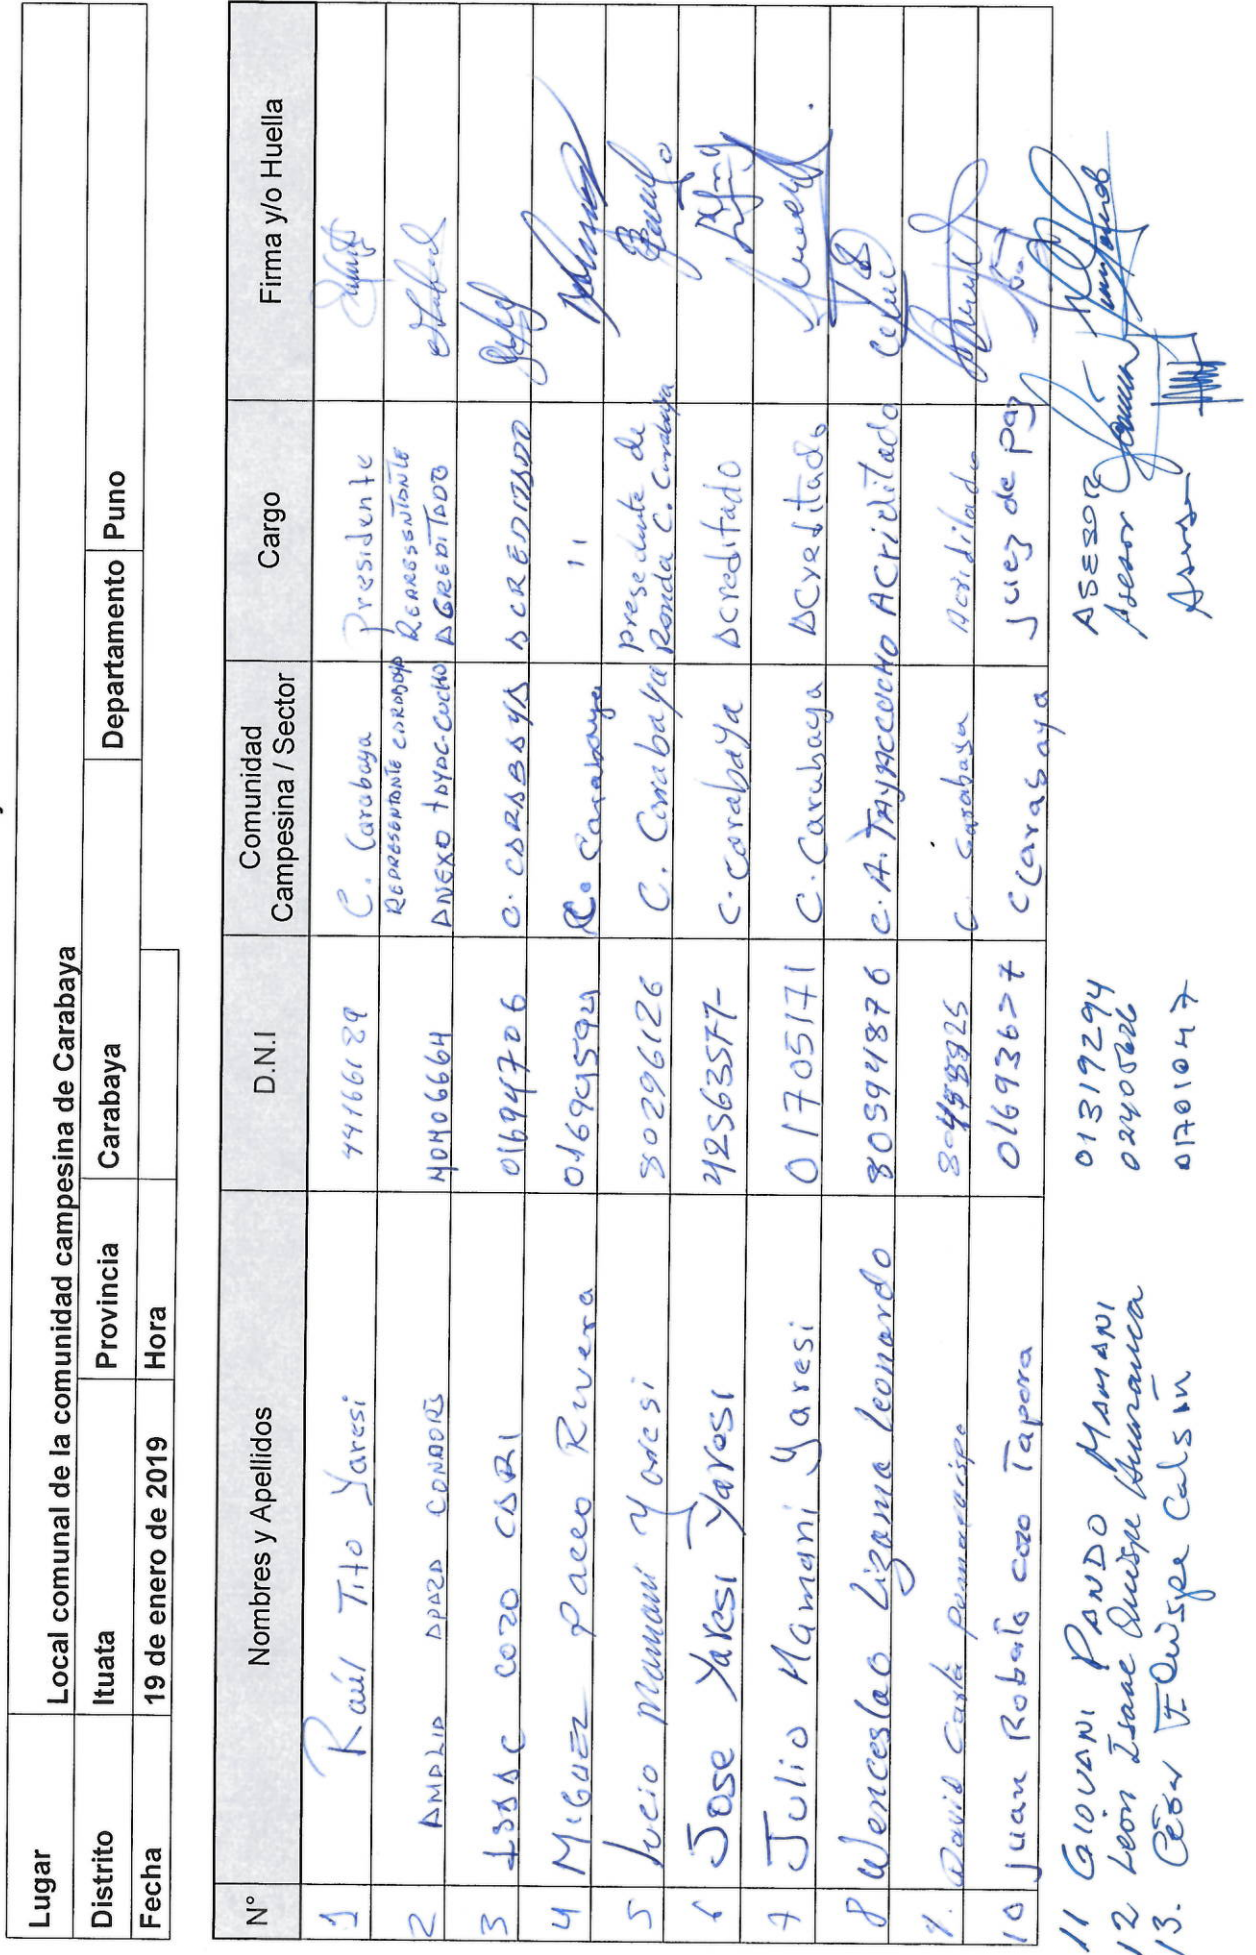 Lugar Local comunal de la comunidad campesina de Carabaya
Distrito Ituata Provincia Carabaya Departamento Puno
Fecha 19 de enero de 2019 Hora
N° Nombres y Apellidos D.N.I Comunidad Campesina / Sector Cargo Firma y/o Huella
1 Raúl Tito Yaresi 44166189 C. Carabaya Presidente
2 AMALIA APAZA CONDORI 40406664 REPRESENTANTE CARABAYA ANEXO TAYAC-CUCHO REPRESENTANTE ACREDITADO
3 ISAAC COZO CARI 01694706 C. CARABAYA ACREDITADO
4 MIGUEL Pacco Rivera C. Carabaya "
5 Lucio Mamani Yaresi 80296126 C. Carabaya presedente de Ronda C. Carabaya
6 Jose Yaresi Yaresi C. Carabaya Acreditado
7 Julio Mamani Yaresi 01705171 C. Carabaya Acreditado
8 Wenceslao Lizama Leonardo 80394876 C. A. TAYACCUCHO ACriditado
9. David C. Carabaya Acriditado
10 Juan Roberto cozo Tapara C Carabaya Juez de paz
11 GIOVANI PANDO MAMANI 01319294 ASESOR
12 León Isaac Quispe Huaranca Asesor
13. César F. Quispe Calsin 01701047 Asesor